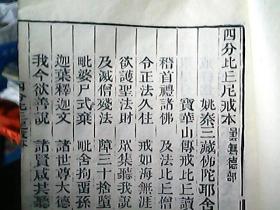 四分比丘尼戒本 曇無德部
姚秦三藏佛陀耶舍
寶華山傳戒比丘讀
稽首禮諸佛 及法比丘僧
令正法久住 戒如海無涯
欲護聖法財 眾集聽我說
及滅僧殘法 障三十捨墮
毗婆尸式棄 毗舍拘留孫
迦葉釋迦文 諸世尊大德
我今欲善說 諸賢咸共聽
四